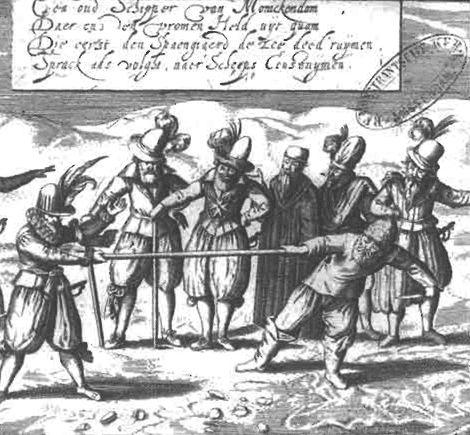 Een oud Schipper van Monickendam
Daer ens den vromen Held uyt quam
Die eerst den Spaengiaerd de Zee deed ruymen,
Sprack als volght, naer Scheeps Costuymen.